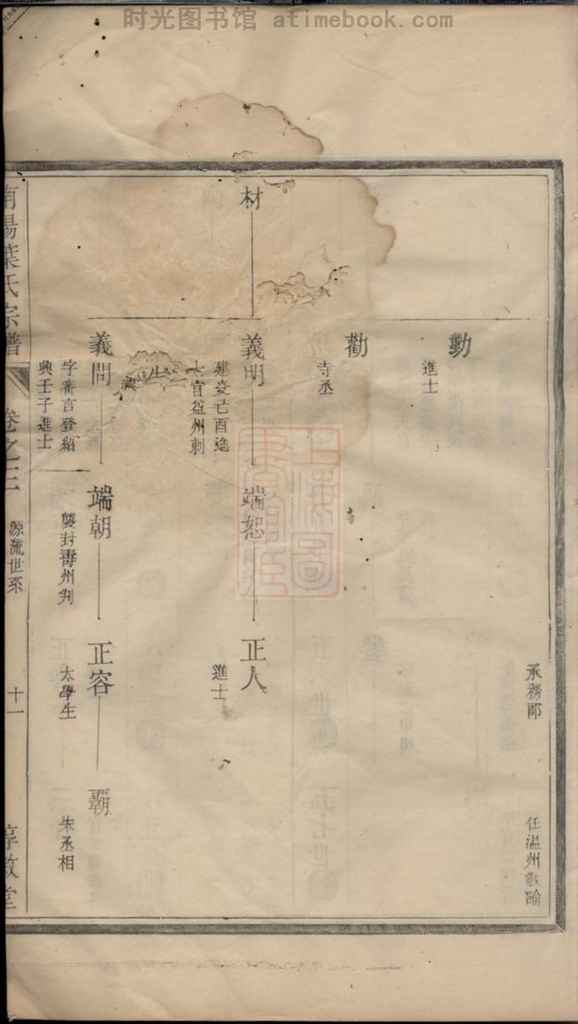 时光图书馆 atimebook.com
承務郎
任溫州教諭
勳
進士
勸
寺丞
材
義明
建炎己酉進
士官益州刺
端恕
正人
進士
義問
字審言登紹
興壬子進士
端朝
襲封壽州判
正容
太學生
霸
朱丞相
南陽葉氏宗譜
卷之三
源流世系
十一
惇敘堂
上海图書館藏